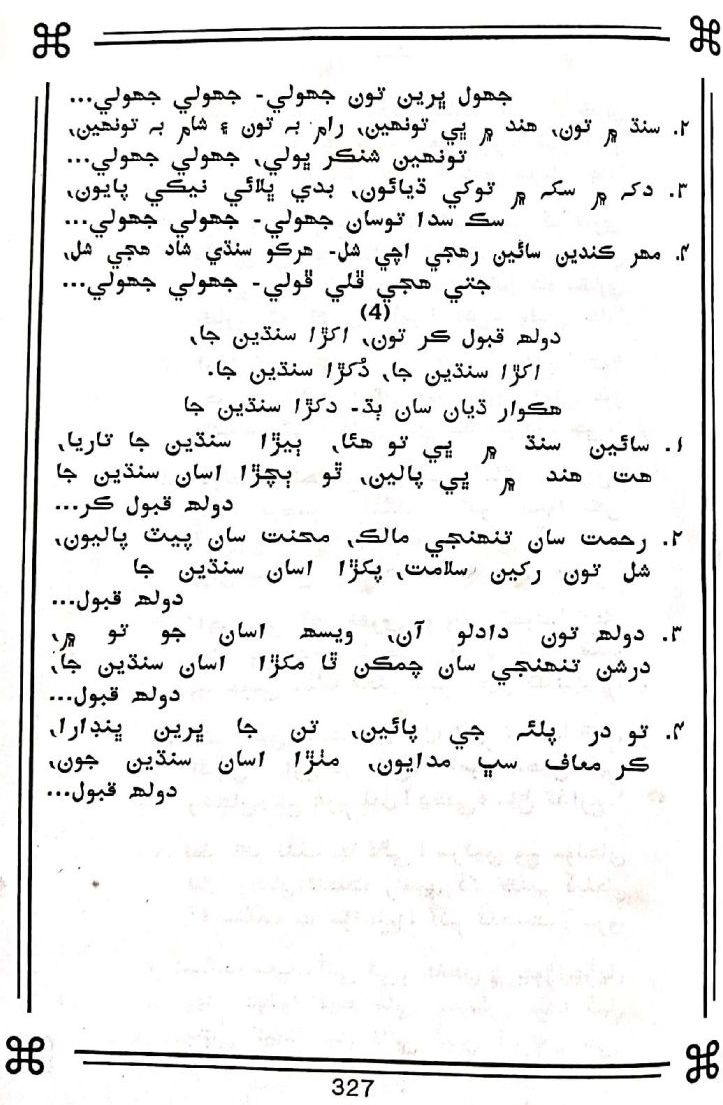 جھول ڀرين تون جھولي- جھولي جھولي...
۲. سنڌ ۾ تون، هند ۾ ڀي تونهين، رام به تون ۽ شام به تونهين،
تونهين شنڪر ڀولي، جھولي جھولي...
۳. دک ۾ سک ۾ توکي ڌيائون، بدي ڀلائي نيڪي پايون،
سڪ سدا توسان جھولي- جھولي جھولي...
۴. مهر ڪندين سائين رهجي اچي شل- هرڪو سنڌي شاد هجي شل،
جتي هجي ڦلي ڦولي- جھولي جھولي...
(4)
دولھ قبول ڪر تون، اکڙا سنڌين جا،
اکڙا سنڌين جا، ڏکڙا سنڌين جا.
هڪوار ڌيان سان ٻڌ- دکڙا سنڌين جا
۱. سائين سنڌ ۾ ڀي تو هئا، ٻيڙا سنڌين جا تاريا،
هت هند ۾ ڀي پالين، ٿو ٻچڙا اسان سنڌين جا
دولھ قبول ڪر...
۲. رحمت سان تنهنجي مالڪ، محنت سان پيٽ پاليون،
شل تون رکين سلامت، پکڙا اسان سنڌين جا
دولھ قبول...
۳. دولھ تون دادلو آن، ويسھ اسان جو تو ۾،
درشن تنهنجي سان چمڪن ٿا مکڙا اسان سنڌين جا،
دولھ قبول...
۴. تو در پلئه جي پائين، تن جا ڀرين ڀنڊارا،
ڪر معاف سڀ مدايون، مٺڙا اسان سنڌين جون،
دولھ قبول...
327